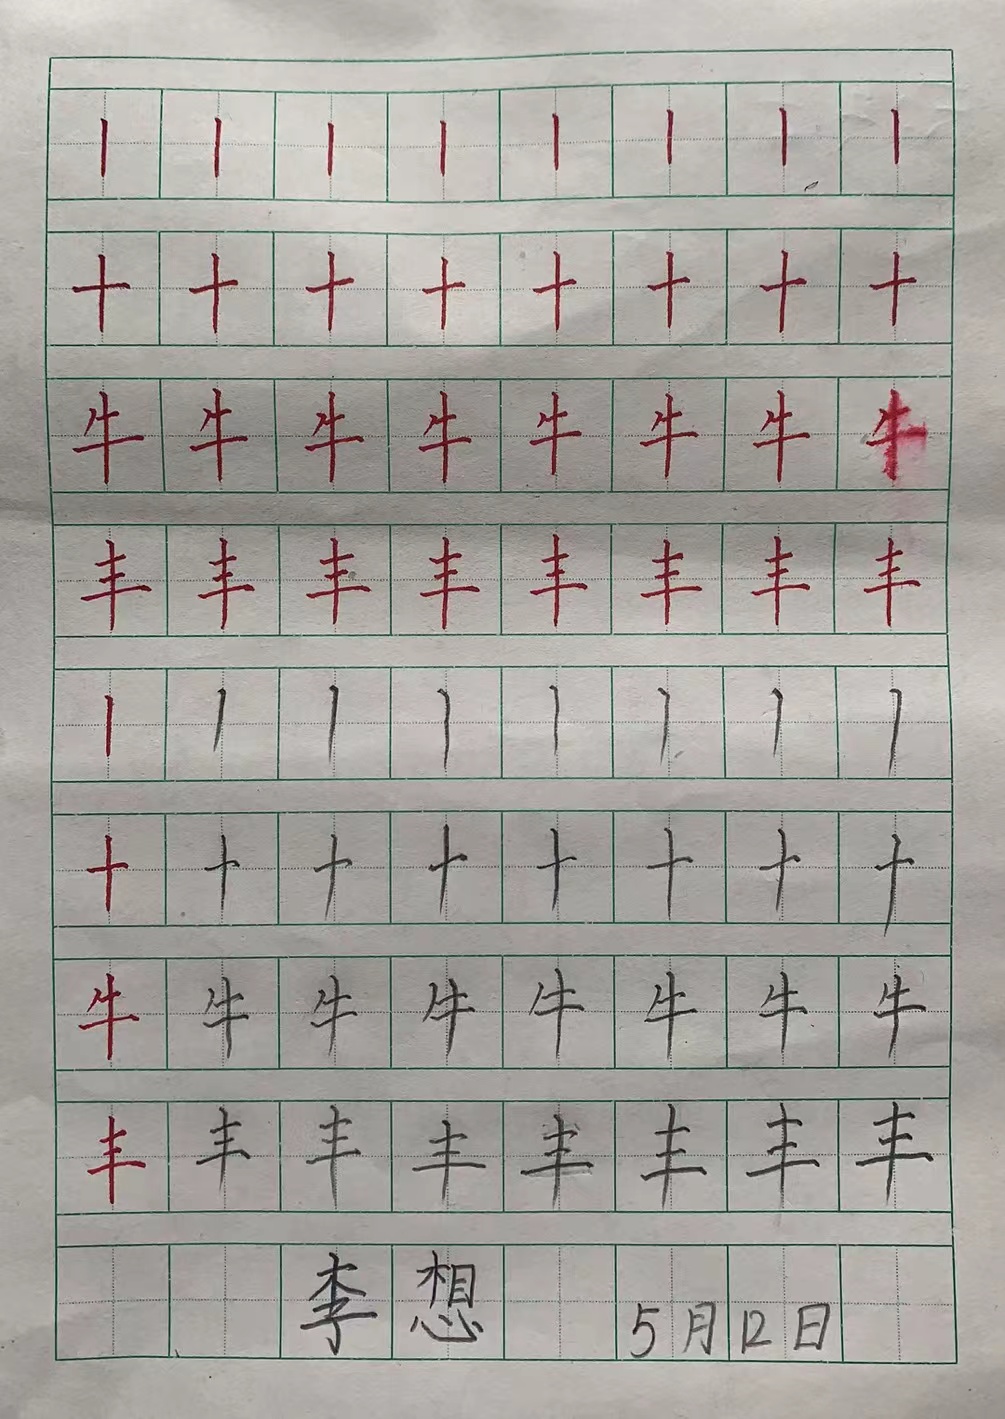 丨丨丨丨丨丨丨丨
十十十十十十十十
牛牛牛牛牛牛牛牛
丰丰丰丰丰丰丰丰
丨丨丨丨丨丨丨丨
十十十十十十十十
牛牛牛牛牛牛牛牛
丰丰丰丰丰丰丰丰
李想 5月12日